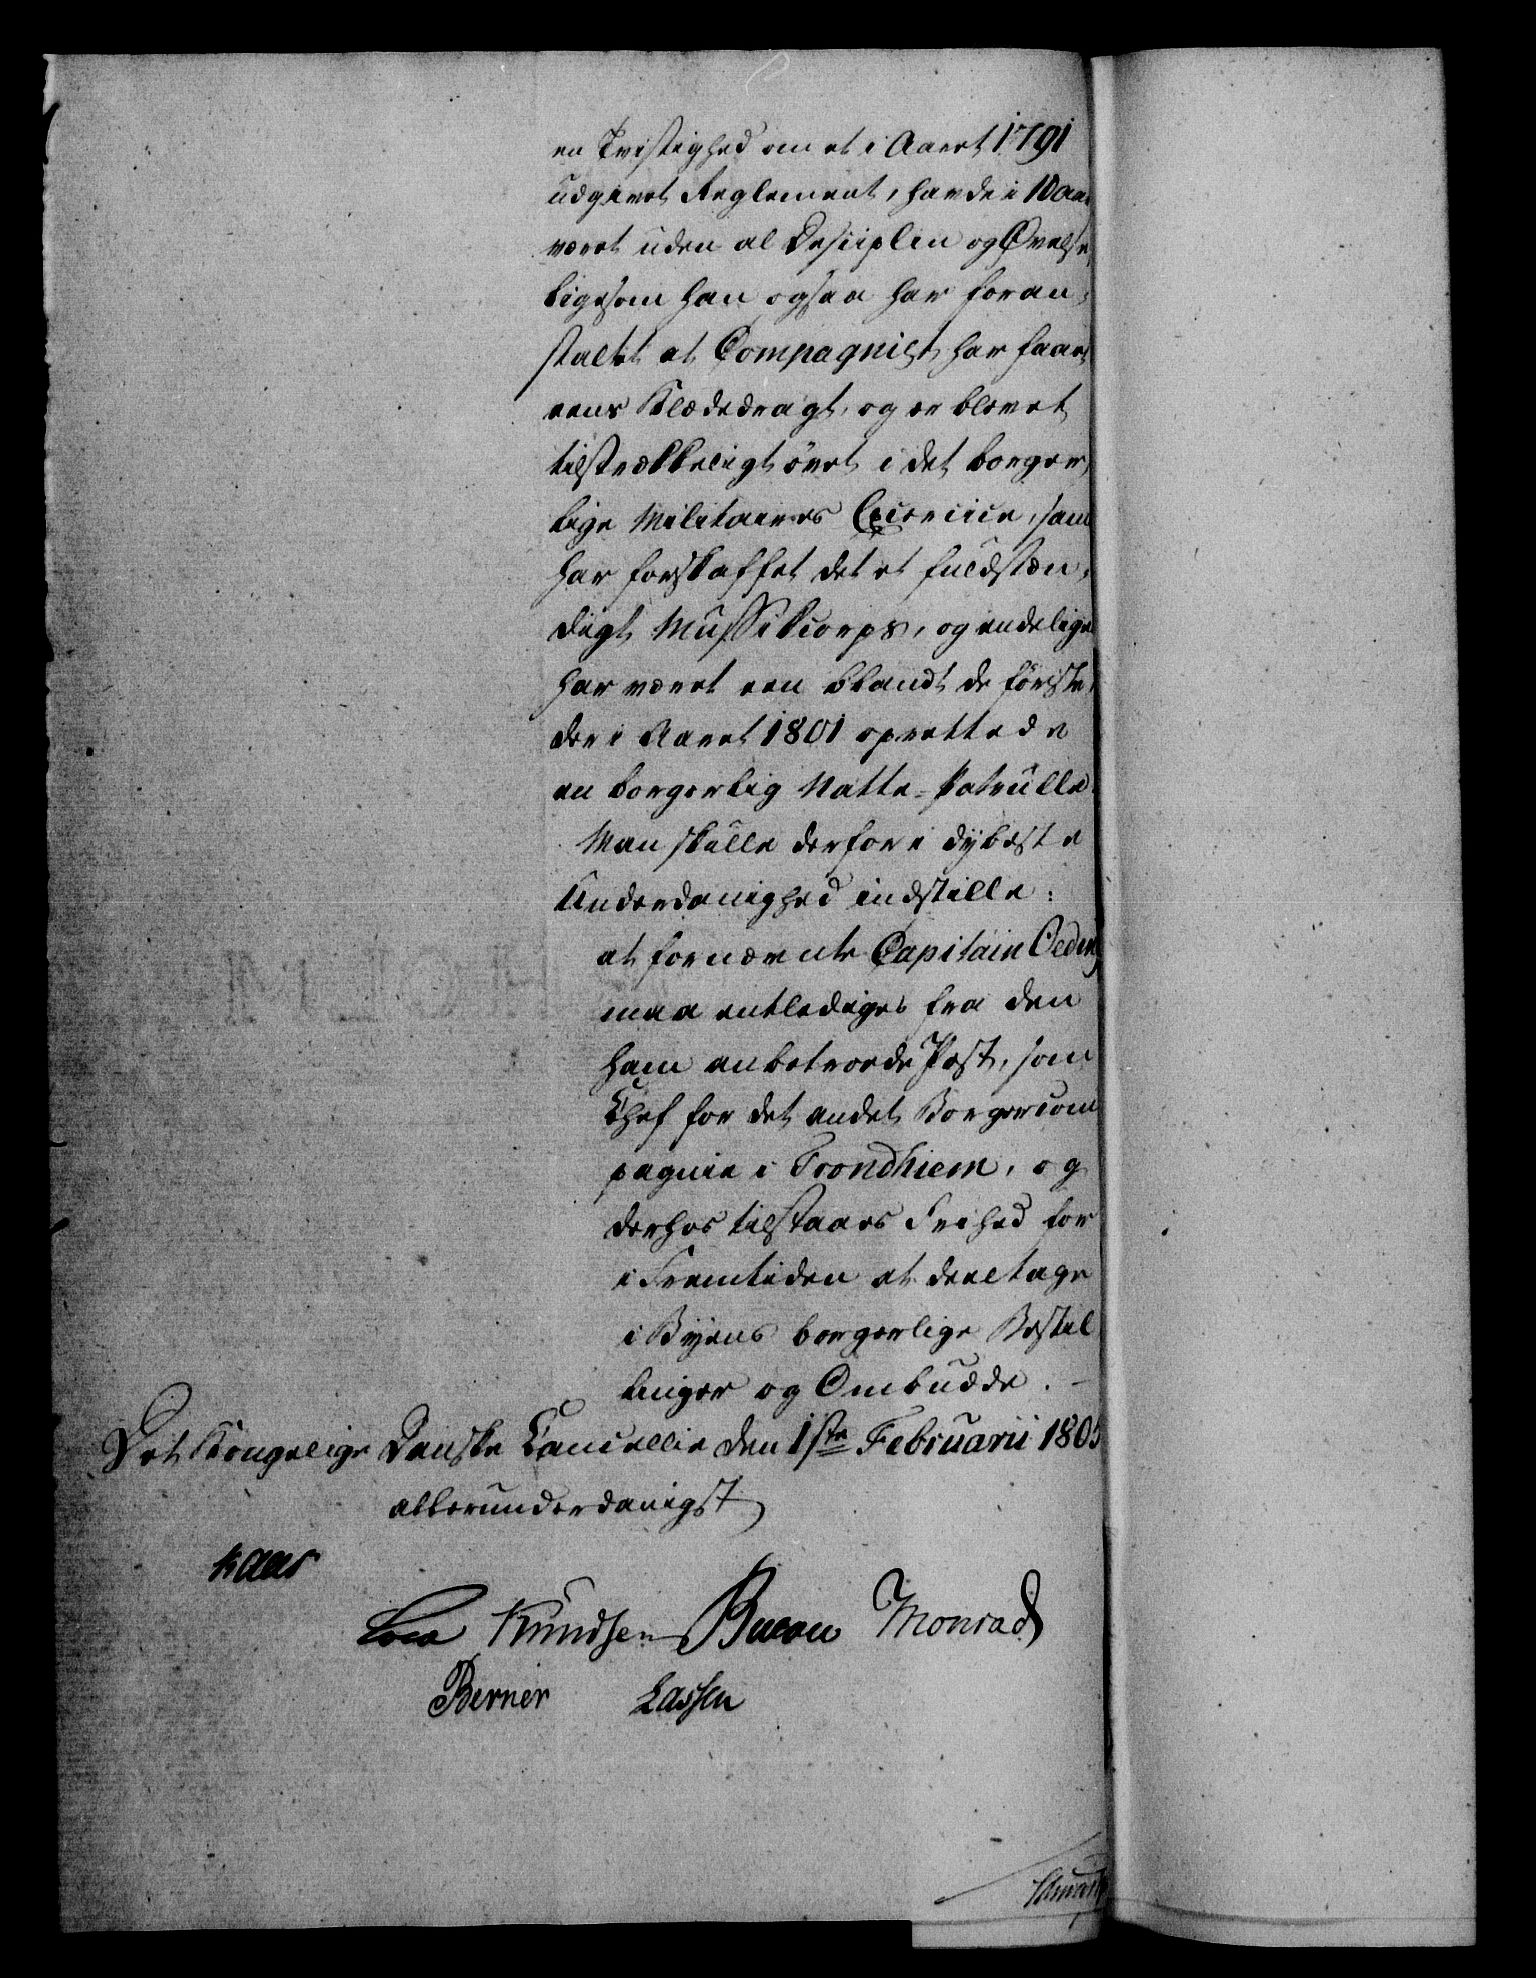 en Tvistighed om et i Aaret 1791
udgivet Reglement, havde i 10 Aar
været uden al Desiiplin og Øvelse,
ligesom han ogsaa har foran,
staltet at Compagniet har faaet
eens Klædedragt, og er blevet
tilstrækkeligt övet i det borger,
lige Militaires Exercice, samt
har forskaffet det et fuldstæn,
digt Mussikcorps, og endelige
har været een blandt de förste,
der i Aaret 1801 oprettede
en borgerlig Natte-Patrulle.
Man skulle derfor i dybeste
Underdanighed indstille:
at fornævnte Capitain
maa entlediges fra den
ham anbetroede Post, som
Chef for det andet Borgercom
pagnie i Trondhiem, og
derhos tilstaaes Frihed for
i Fremtiden at deeltage
i Byens borgerlige Bestil
linger og Ombudde. -
Det Kongelige Danske Cancellie den 1ste Februarii 1805
allerunderdanigst
Kaas
Knudsen Bülow Monrad
Berner Lassen